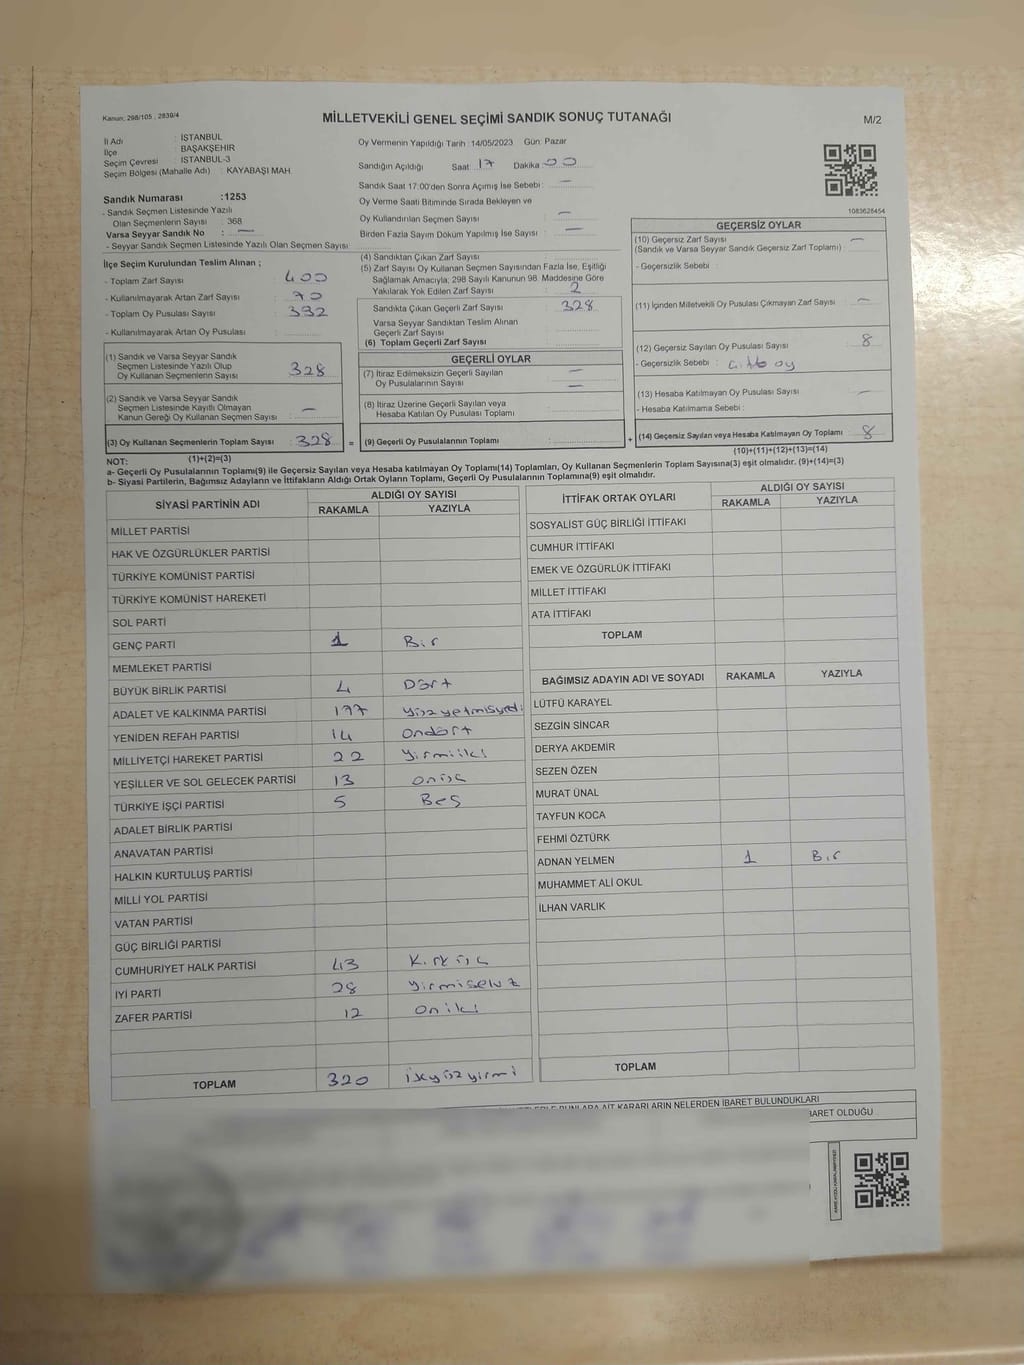 Kanun: 298/105 , 2839/4
MİLLETVEKİLİ GENEL SEÇİMİ SANDIK SONUÇ TUTANAĞI
M/2
İl Adı : İSTANBUL
İlçe : BAŞAKŞEHİR
Seçim Çevresi : İSTANBUL-3
Seçim Bölgesi (Mahalle Adı) : KAYABAŞI MAH.
Oy Vermenin Yapıldığı Tarih : 14/05/2023 Gün: Pazar
Sandığın Açıldığı Saat: 17 Dakika 00
Sandık Saat 17:00'den Sonra Açımış İse Sebebi : —
Oy Verme Saati Bitiminde Sırada Bekleyen ve
Oy Kullandırılan Seçmen Sayısı : —
Birden Fazla Sayım Döküm Yapılmış İse Sayısı : —
Sandık Numarası :1253
- Sandık Seçmen Listesinde Yazılı
Olan Seçmenlerin Sayısı : 368
Varsa Seyyar Sandık No : —
- Seyyar Sandık Seçmen Listesinde Yazılı Olan Seçmen Sayısı:
1083628454
İlçe Seçim Kurulundan Teslim Alınan ;
- Toplam Zarf Sayısı : 400
- Kullanılmayarak Artan Zarf Sayısı :
- Toplam Oy Pusulası Sayısı :
- Kullanılmayarak Artan Oy Pusulası :
(1) Sandık ve Varsa Seyyar Sandık
Seçmen Listesinde Yazılı Olup
Oy Kullanan Seçmenlerin Sayısı : 328
(2) Sandık ve Varsa Seyyar Sandık
Seçmen Listesinde Kayıtlı Olmayan
Kanun Gereği Oy Kullanan Seçmen Sayısı : —
(3) Oy Kullanan Seçmenlerin Toplam Sayısı : 328 =
(1)+(2)=(3)
(4) Sandıktan Çıkan Zarf Sayısı :
(5) Zarf Sayısı Oy Kullanan Seçmen Sayısından Fazla İse, Eşitliği
Sağlamak Amacıyla; 298 Sayılı Kanunun 98. Maddesine Göre
Yakılarak Yok Edilen Zarf Sayısı : 2
Sandıkta Çıkan Geçerli Zarf Sayısı : 328
Varsa Seyyar Sandıktan Teslim Alınan
Geçerli Zarf Sayısı :
(6) Toplam Geçerli Zarf Sayısı :
GEÇERLİ OYLAR
(7) İtiraz Edilmeksizin Geçerli Sayılan : —
Oy Pusulalarının Sayısı : —
(8) İtiraz Üzerine Geçerli Sayılan veya
Hesaba Katılan Oy Pusulası Toplamı :
(9) Geçerli Oy Pusulalarının Toplamı : +
GEÇERSİZ OYLAR
(10) Geçersiz Zarf Sayısı : —
(Sandık ve Varsa Seyyar Sandık Geçersiz Zarf Toplamı)
- Geçersizlik Sebebi :
(11) İçinden Milletvekili Oy Pusulası Çıkmayan Zarf Sayısı : —
(12) Geçersiz Sayılan Oy Pusulası Sayısı : 8
- Geçersizlik Sebebi : oy
(13) Hesaba Katılmayan Oy Pusulası Sayısı : —
- Hesaba Katılmama Sebebi :
(14) Geçersiz Sayılan veya Hesaba Katılmayan Oy Toplamı : 8
(10)+(11)+(12)+(13)=(14)
NOT:
a- Geçerli Oy Pusulalarının Toplamı(9) ile Geçersiz Sayılan veya Hesaba katılmayan Oy Toplamı(14) Toplamları, Oy Kullanan Seçmenlerin Toplam Sayısına(3) eşit olmalıdır. (9)+(14)=(3)
b- Siyasi Partilerin, Bağımsız Adayların ve İttifakların Aldığı Ortak Oyların Toplamı, Geçerli Oy Pusulalarının Toplamına(9) eşit olmalıdır.
SİYASİ PARTİNİN ADI ALDIĞI OY SAYISI
RAKAMLA YAZIYLA
MİLLET PARTİSİ
HAK VE ÖZGÜRLÜKLER PARTİSİ
TÜRKİYE KOMÜNİST PARTİSİ
TÜRKİYE KOMÜNİST HAREKETİ
SOL PARTİ
GENÇ PARTİ 1 Bir
MEMLEKET PARTİSİ
BÜYÜK BİRLİK PARTİSİ 4 Dört
ADALET VE KALKINMA PARTİSİ 177 yüzyetmişyedi
YENİDEN REFAH PARTİSİ 14 ondört
MİLLİYETÇİ HAREKET PARTİSİ 22 yirmiiki
YEŞİLLER VE SOL GELECEK PARTİSİ 13 onüç
TÜRKİYE İŞÇİ PARTİSİ 5 Beş
ADALET BİRLİK PARTİSİ
ANAVATAN PARTİSİ
HALKIN KURTULUŞ PARTİSİ
MİLLİ YOL PARTİSİ
VATAN PARTİSİ
GÜÇ BİRLİĞİ PARTİSİ
CUMHURİYET HALK PARTİSİ 43 Kırküç
İYİ PARTİ 28 yirmisekiz
ZAFER PARTİSİ 12 oniki
TOPLAM 320
İTTİFAK ORTAK OYLARI ALDIĞI OY SAYISI
RAKAMLA YAZIYLA
SOSYALİST GÜÇ BİRLİĞİ İTTİFAKI
CUMHUR İTTİFAKI
EMEK VE ÖZGÜRLÜK İTTİFAKI
MİLLET İTTİFAKI
ATA İTTİFAKI
TOPLAM
BAĞIMSIZ ADAYIN ADI VE SOYADI RAKAMLA YAZIYLA
LÜTFÜ KARAYEL
SEZGİN SİNCAR
DERYA AKDEMİR
SEZEN ÖZEN
MURAT ÜNAL
TAYFUN KOCA
FEHMİ ÖZTÜRK
ADNAN YELMEN 1 Bir
MUHAMMET ALİ OKUL
İLHAN VARLIK
TOPLAM
AİT KARARLARIN NELERDEN İBARET BULUNDUKLARI
BARET OLDUĞU